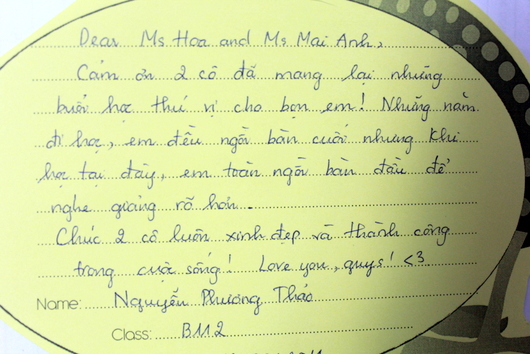 Dear Ms Hoa and Ms Mai Anh,
Cảm ơn 2 cô đã mang lại những
buổi học thú vị cho bọn em! Những năm
đi học, em đều ngồi bàn cuối nhưng khi
học tại đây, em toàn ngồi bàn đầu để
nghe giảng rõ hơn.
Chúc 2 cô luôn xinh đẹp và thành công
trong cuộc sống! Love you, guys! <3
Name: Nguyễn Phương Thảo
Class: B112